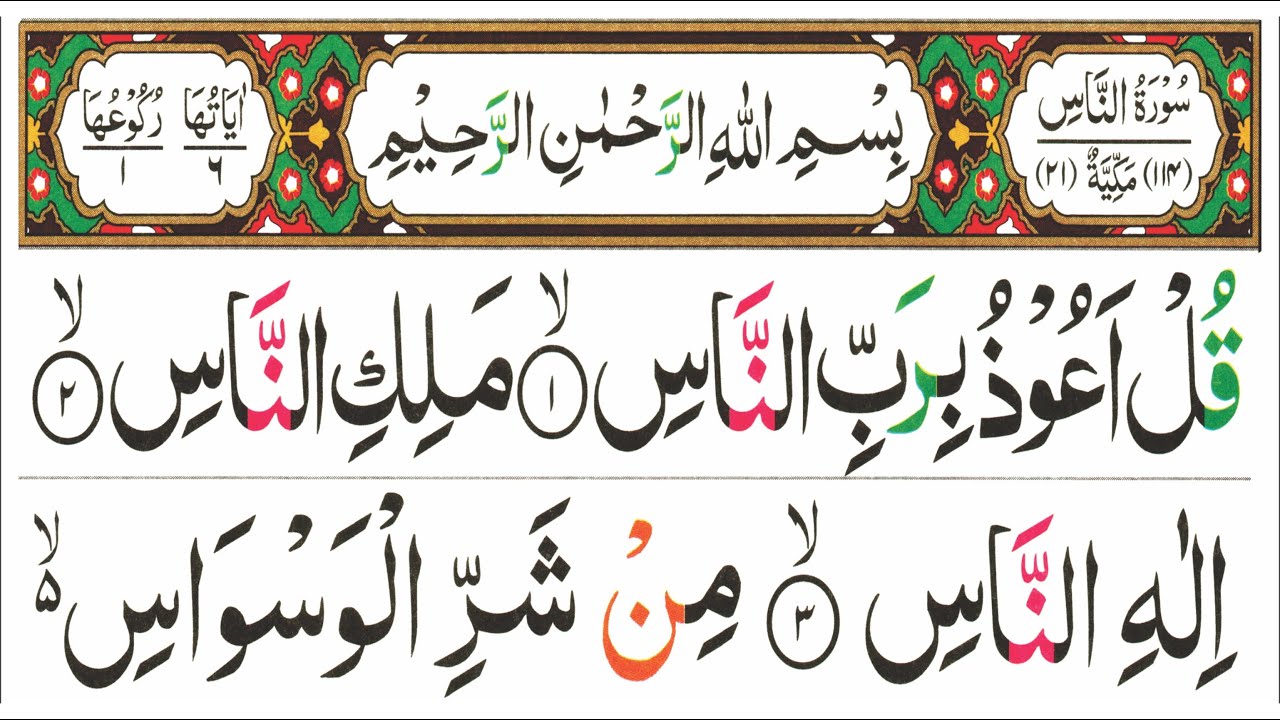 سُوْرَةُ النَّاسِ
(۱۱۴) مَكِّيَّةٌ (۲۱)
بِسْمِ اللّٰهِ الرَّحْمٰنِ الرَّحِيْمِ
اٰيَاتُهَا ۶
رُكُوْعُهَا ۱
قُلْ اَعُوْذُ بِرَبِّ النَّاسِ ۙ۱ مَلِكِ النَّاسِ ۙ۲
اِلٰهِ النَّاسِ ۙ۳ مِنْ شَرِّ الْوَسْوَاسِ ۙ۵